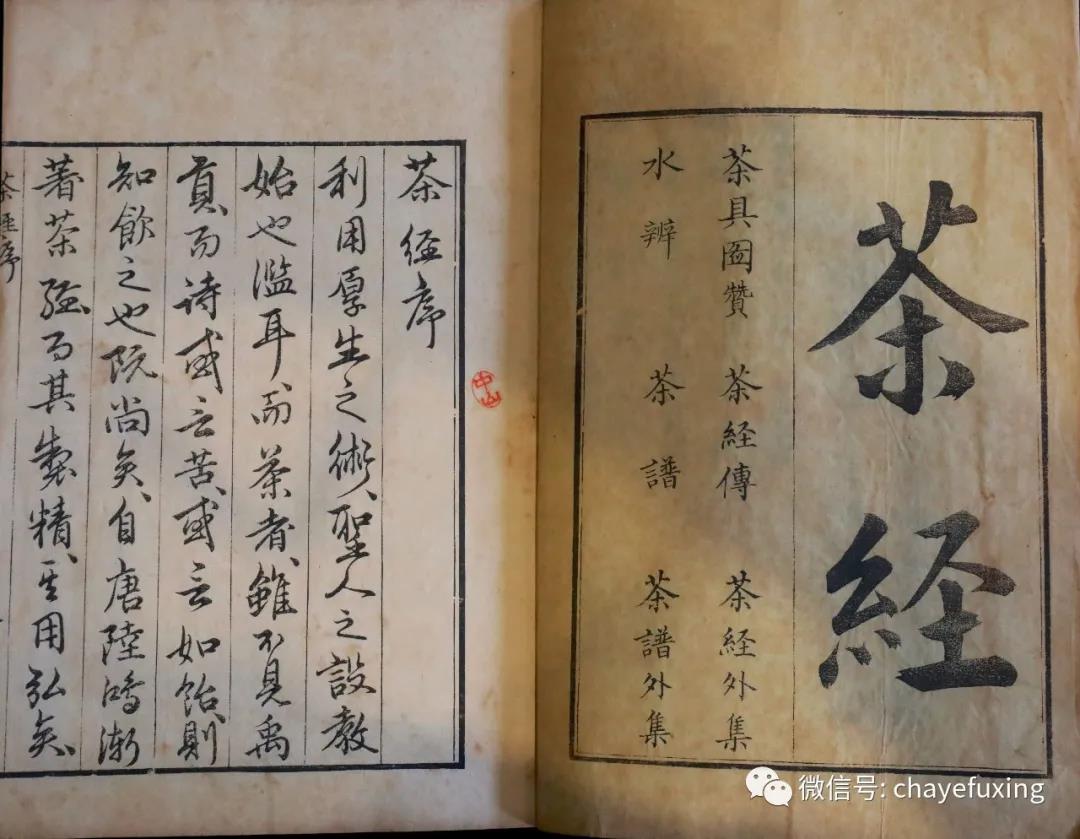 茶経
茶具圖贊 茶経傳 茶経外集
水辨 茶譜 茶譜外集
中山
茶経序
利用厚生之術、聖人之設教
始也濫耳、而茶者、雖不見禹
貢、而詩或言苦、或言如飴、則
知飲之也既尚矣、自唐陸鴻漸
著茶経、而其製精、其用弘矣、
茶経序
微信号: chayefuxing